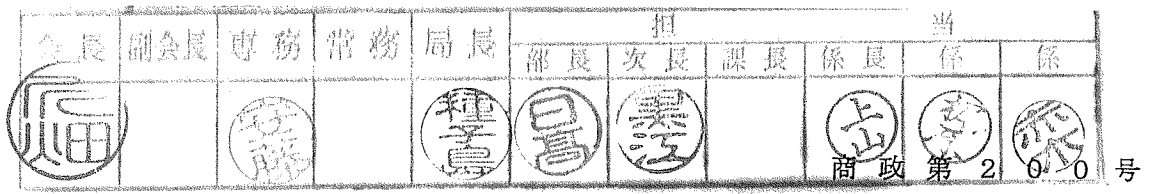 会長 副会長 専務 常務 局長 担当
部長 次長 課長 係長 係 係
種子島 日高 上山
商政第200号